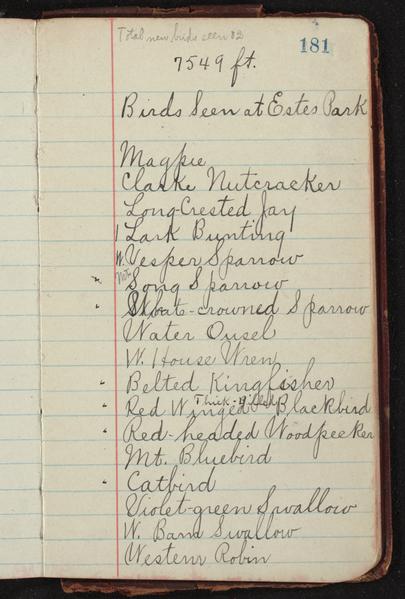 Total new birds seen 82
181
7549 ft.
Birds Seen at Estes Park
Magpie
Clarke Nutcracker
Long-Crested Jay
1 Lark Bunting
W. Vesper Sparrow
Mt. Song Sparrow
White-crowned Sparrow
Water Ousel
W. House Wren
Belted Kingfisher
Thick-billed
Red Winged Blackbird
Red-headed Woodpecker
Mt. Bluebird
Catbird
Violet-green Swallow
W. Barn Swallow
Western Robin